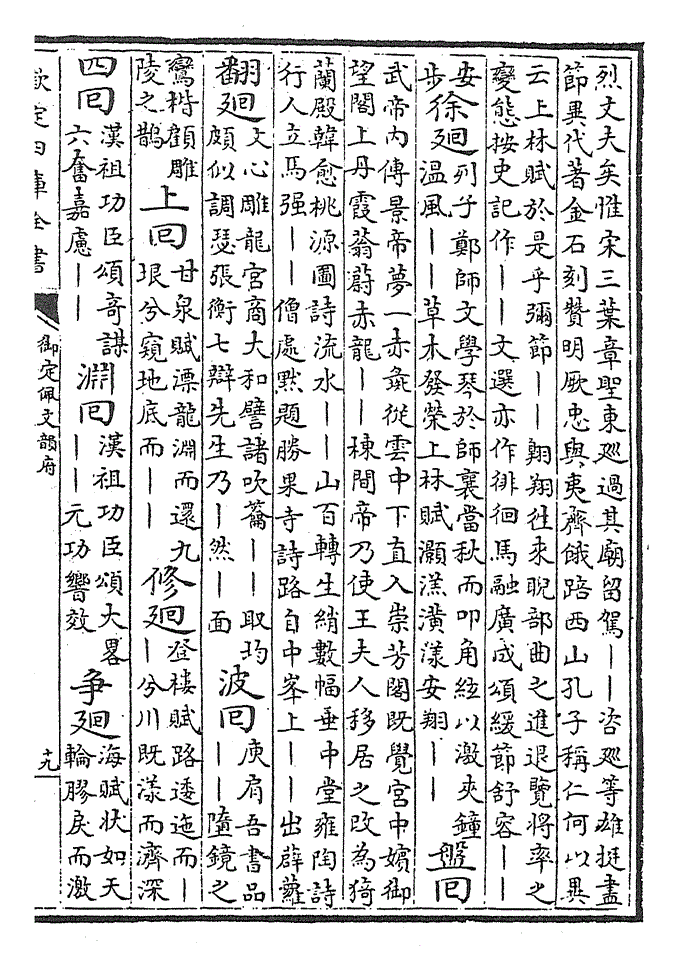 烈文夫矣惟宋三葉章聖東廵過其廟留駕——咨廵等雄挺盡
節異代著金石刻贊明厥忠與夷齊餓踣西山孔子稱仁何以異
云上林賦於是乎彌節——翺翔徃來睨部曲之進退覽將率之
變態按史記作——文選亦作徘徊馬融廣成頌緩節舒容——
安
步
徐廻
列子鄭師文學琴於師襄當秋而叩角絃以激夾鐘
温風——草木發榮上林賦灝溔潢漾安翔——
盤回
武帝内傳景帝夢一赤彘從雲中下直入崇芳閣既覺宫中嬪御
望閣上丹霞蓊蔚赤龍——棟間帝乃使王夫人移居之改為猗
蘭殿韓愈桃源圖詩流水——山百轉生綃數幅垂中堂雍陶詩
行人立馬强——僧處默題勝果寺詩路自中峯上——出薜蘿
翻廻
文心雕龍宫商大和譬諸吹籥——取均
頗似調瑟張衡七辯先生乃—然—面
波回
庾肩吾書品
——墮鏡之
鸞楷顧雕
陵之鵲
上回
甘泉賦漂龍淵而還九
垠兮窺地底而——
修廻
登樓賦路逶迤而—
—兮川既漾而濟深
四回
漢祖功臣頌竒謀
六奮嘉慮——
淵回
漢祖功臣頌大畧
——元功響效
争廻
海賦狀如天
輪膠戾而激
欽定四庫全書
御定佩文韻府
十九